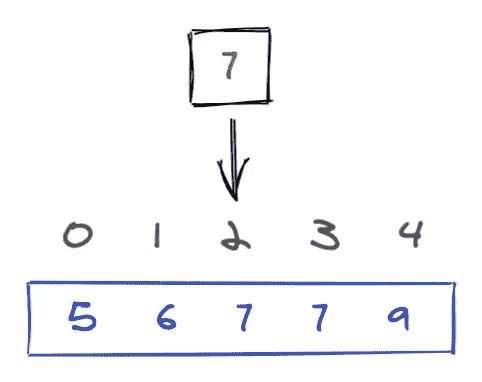 7
0 1 2 3 4
5 6 7 7 9